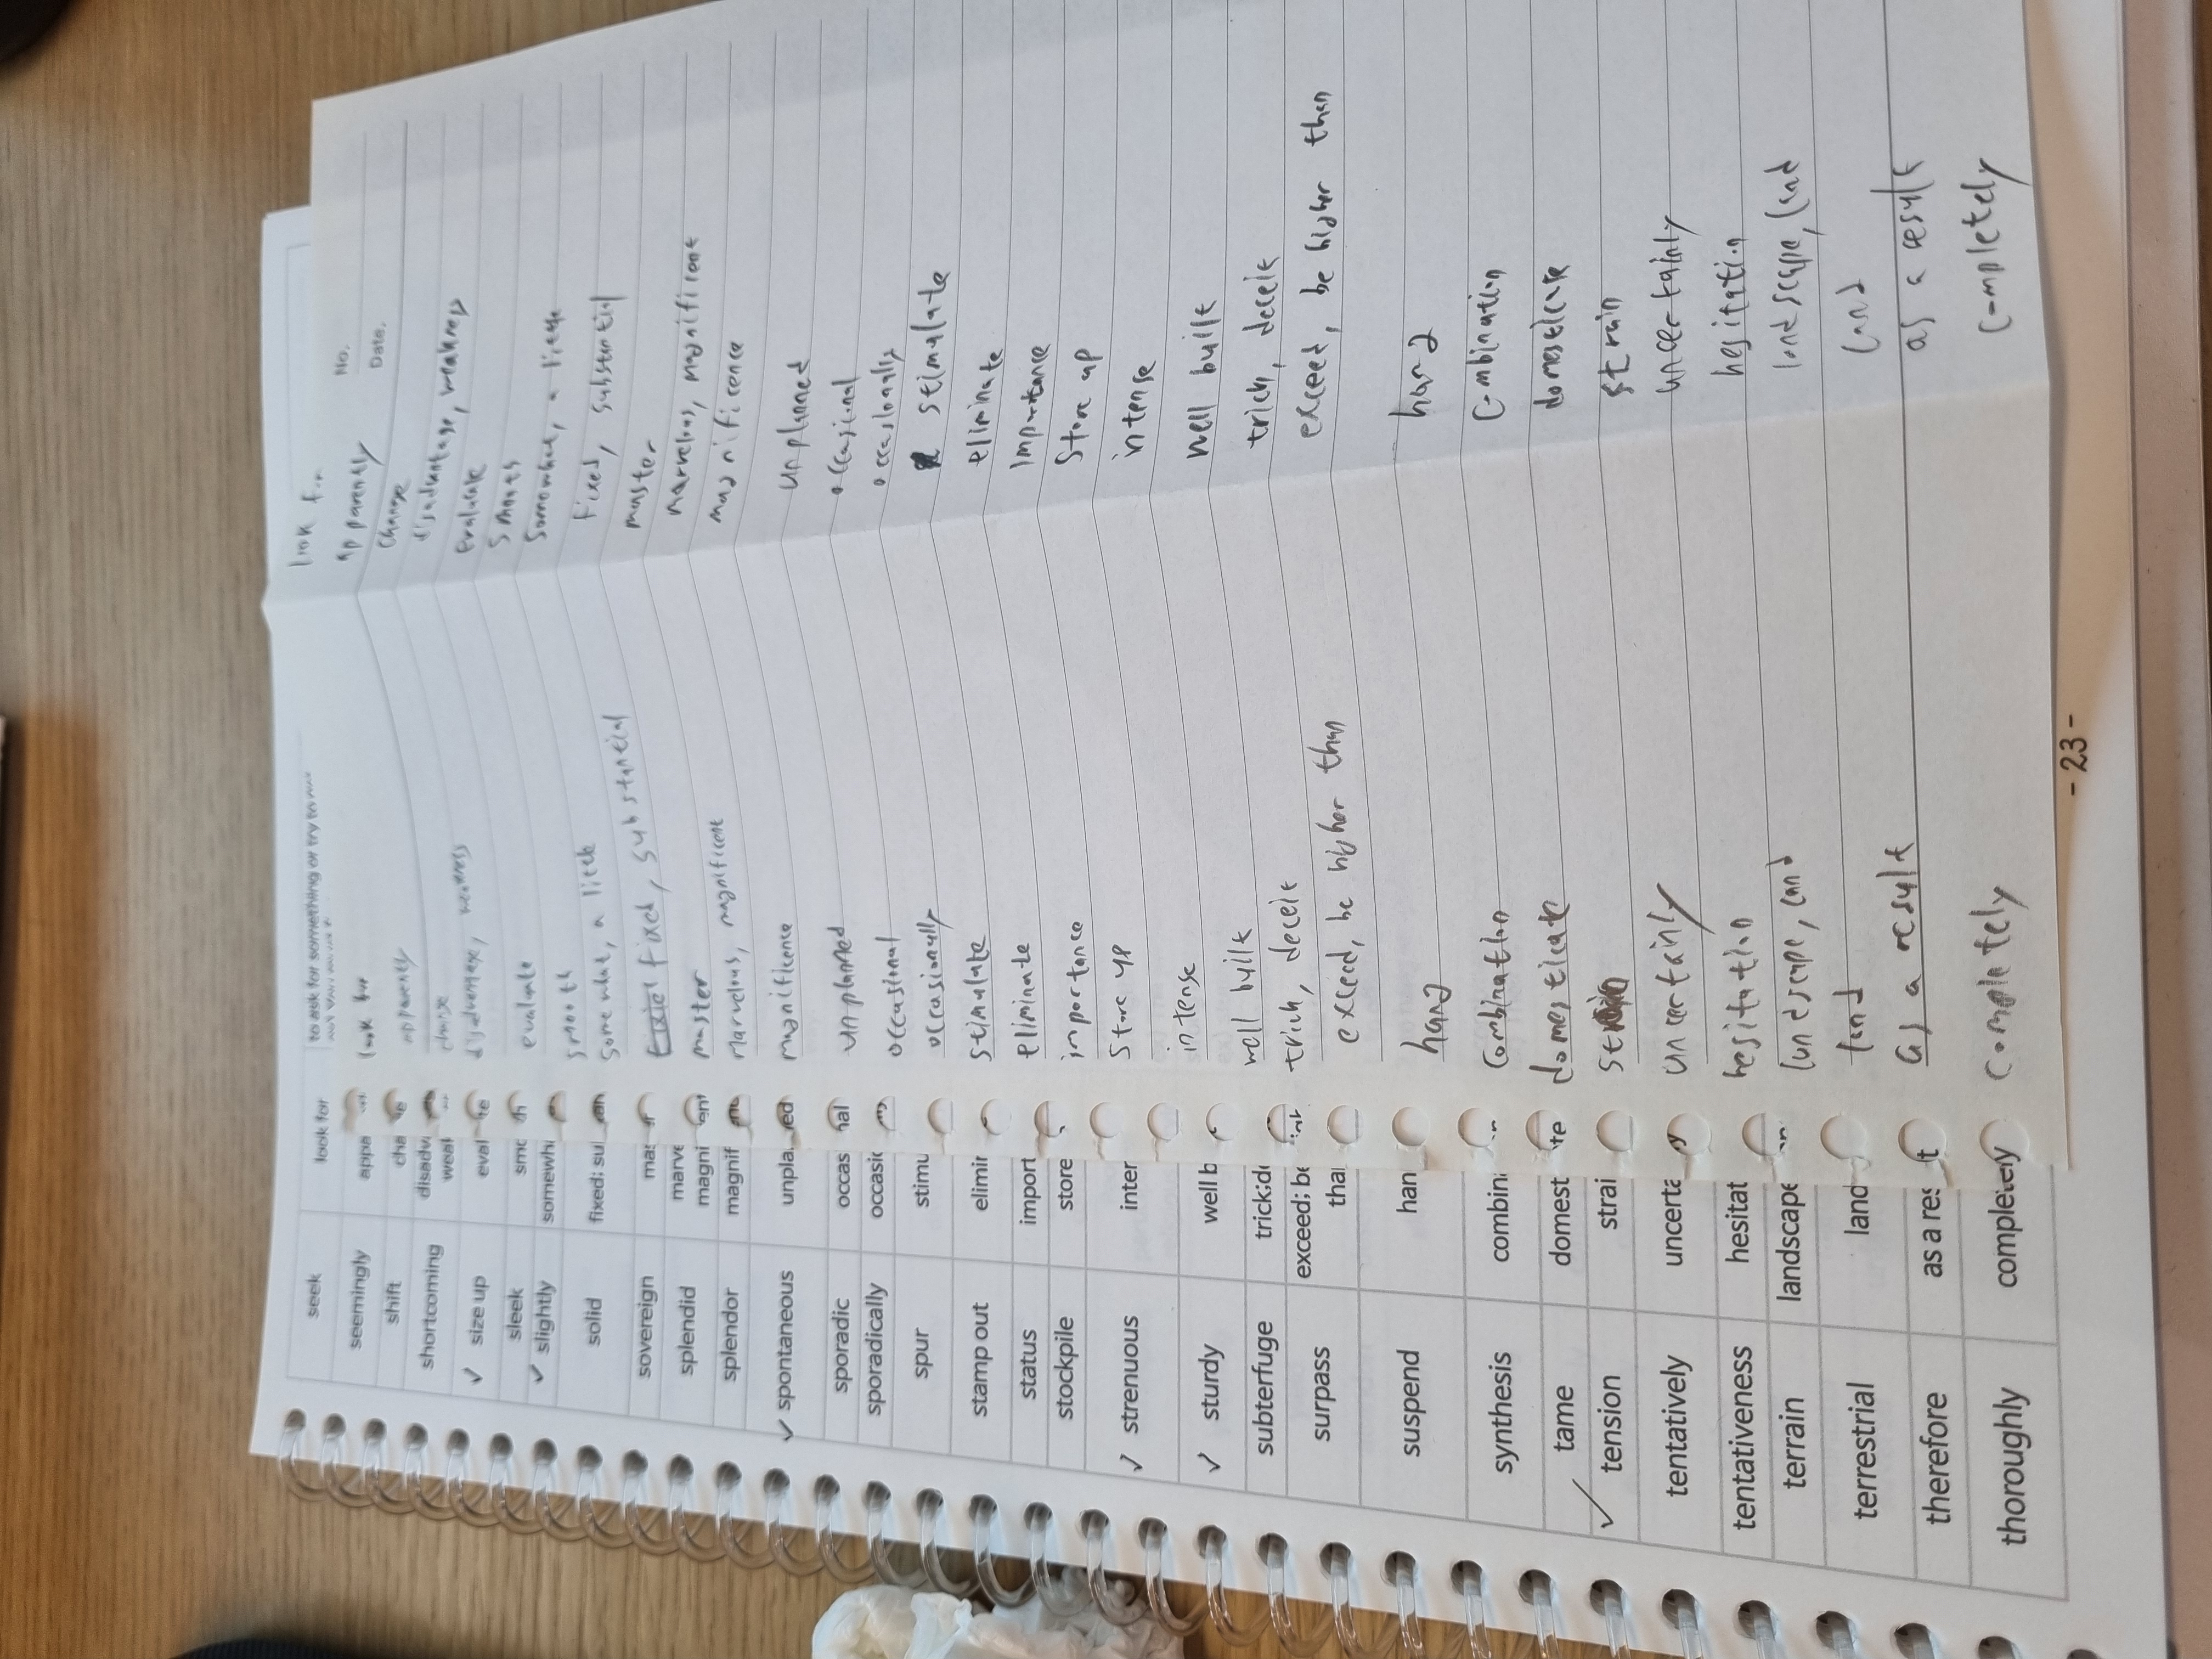 seek look for to ask for something or try to
seemingly appa
shift cha ge
shortcoming disadv
weal
✓ size up eval te
sleek smo th
✓ slightly somewh
solid fixed; su
sovereign mas
splendid marve
magni
splendor magnif
✓ spontaneous unpla ned
sporadic occas nal
sporadically occasio
spur stimu
stamp out elimir
status import
stockpile store
✓ strenuous inter
✓ sturdy well b
subterfuge trick; de
surpass exceed; be
tha
suspend han
synthesis combin
tame domest te
✓ tension strai
tentatively uncerta
tentativeness hesitat
terrain landscape
terrestrial land
therefore as a res t
thoroughly completely
look for
apparently
change
disadvantage, weakness
evaluate
smooth
somewhat, a little
fixed, substantial
master
marvelous, magnificent
magnificence
unplanned
occasional
occasionally
stimulate
eliminate
importance
store up
intense
well built
trich, deceit
exceed, be higher than
hang
combination
domesticate
strain
uncertainly
hesitation
landscape, land
land
as a result
completely
No.
Date.
look for
apparently
change
disadvantage, weakness
evaluate
smooth
Somewhat, a little
fixed, substantial
master
marvelous, magnificent
magnificence
unplanned
occasional
occasionally
stimulate
eliminate
importance
store up
intense
well built
trich, deceit
exceed, be higher than
hang
combination
domesticate
strain
uncertainly
hesitation
landscape, land
land
as a result
completely
- 23 -